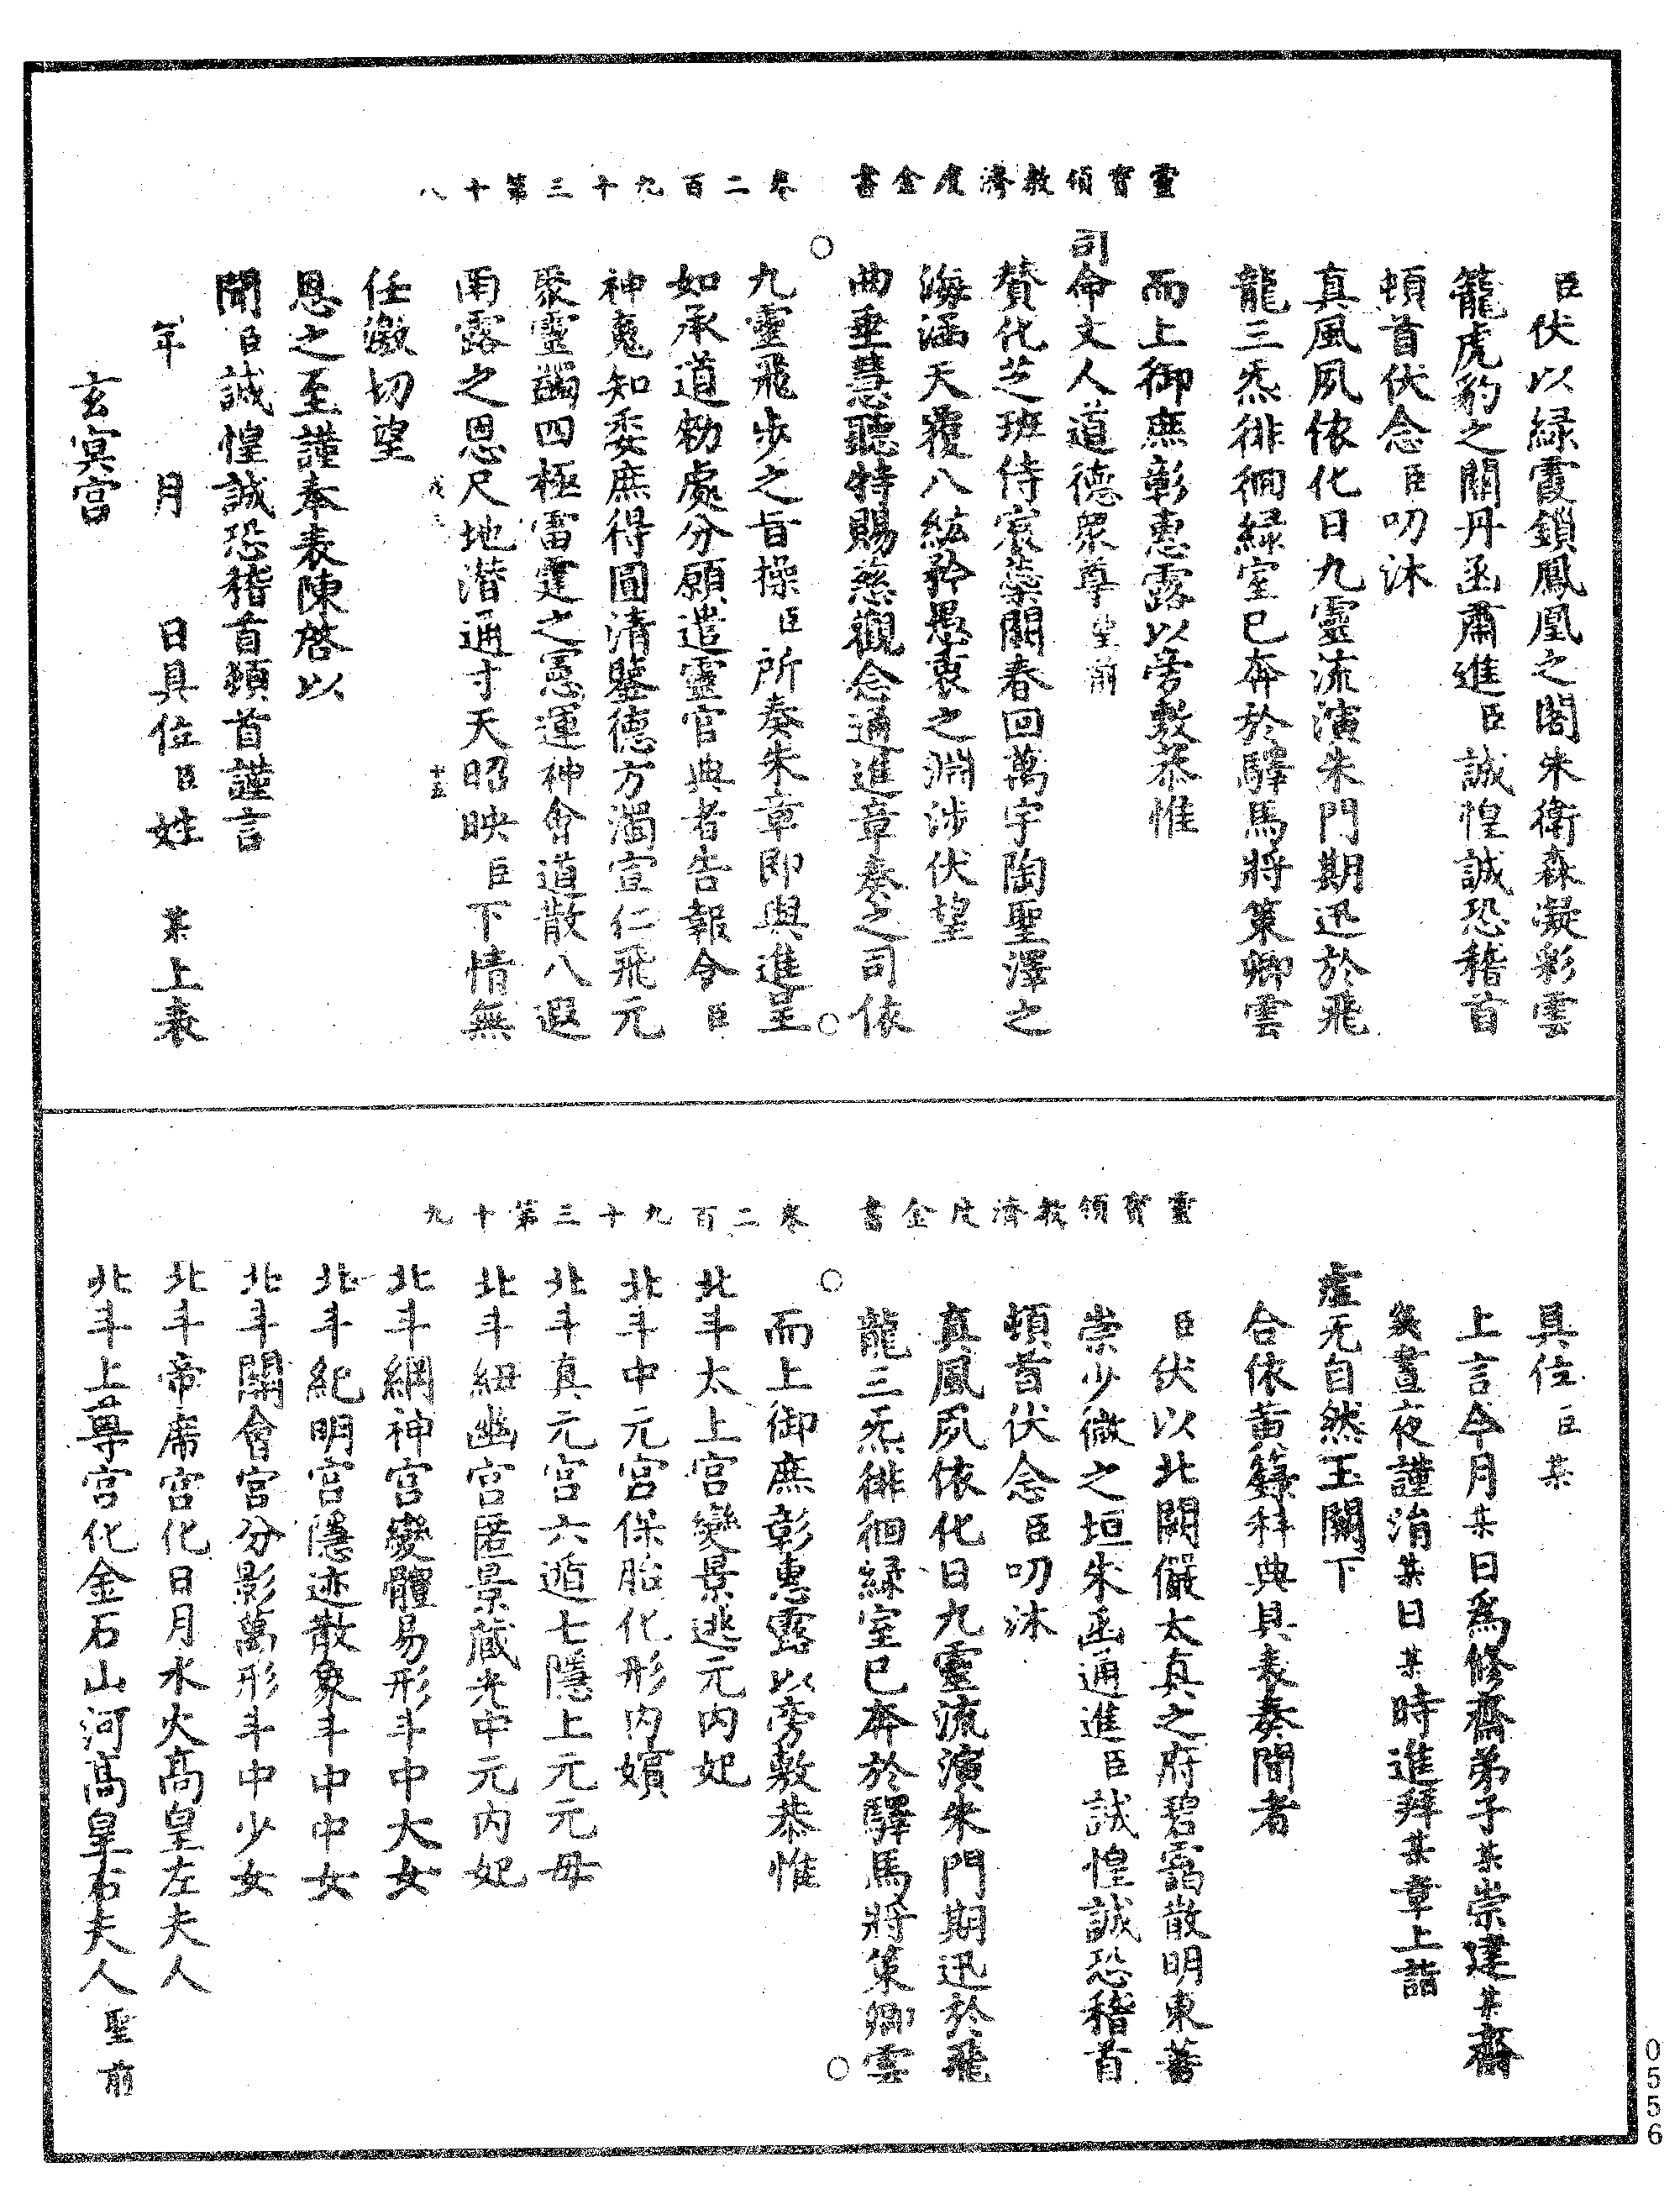 靈寶領教濟度金書　卷二百九十三第十八
臣伏以緑霞鎖鳳凰之閣朱衛森凝彩雲
籠虎豹之關丹函肅進臣誠惶誠恐稽首
頓首伏念臣叨沐
真風夙依化日九靈流演朱門期迅於飛
龍三炁徘徊緑室已奔於驛馬將策卿雲
而上御庶彰惠露以旁敷恭惟
司命丈人道德衆尊聖前
贊化芝班侍宸蘂關春回萬宇陶聖澤之
海涵天覆八紘矜愚衷之淵涉伏望
曲垂慧聽特賜慈觀念通進章奏之司依
九靈飛步之旨操臣所奏朱章即與進呈
如承道勑處分願遣靈官典者告報令臣
神䰟知委庶得圓清鑒德方濁宣仁飛元
聚靈蠲四極雷霆之憲運神會道散八遐
雨露之恩尺地潛通寸天昭映臣下情無
十五
任激切望
恩之至謹奉表陳啓以
聞臣誠惶誠恐稽首頓首謹言
年　月　日具位臣姓　某上表
玄冥宮
靈寶領教濟度金書　卷二百九十三第十九
具位臣某
上言今月某日爲修齋弟子某崇建某齋
幾晝夜謹涓某日某時進拜某章上詣
虛无自然玉闕下
合依黄籙科典具表奏聞者
臣伏以北闕儼太真之府碧靄散明東蕃
崇少微之垣朱函通進臣誠惶誠恐稽首
頓首伏念臣叨沐
真風夙依化日九靈流演朱門期迅於飛
龍三炁徘徊緑室已奔於驛馬將策卿雲
而上御庶彰惠露以旁敷恭惟
北斗太上宮變景逃元内妃
北斗中元宮保胎化形内嬪
北斗真元宮六遁七隱上元元母
北斗紐幽宮匿景藏光中元内妃
北斗綱神宮變體易形斗中大女
北斗紀明宮隱迹散象斗中中女
北斗關會宮分影萬形斗中少女
北斗帝席宮化日月水火高皇左夫人
北斗上尊宮化金石山河高皇右夫人聖前
0556